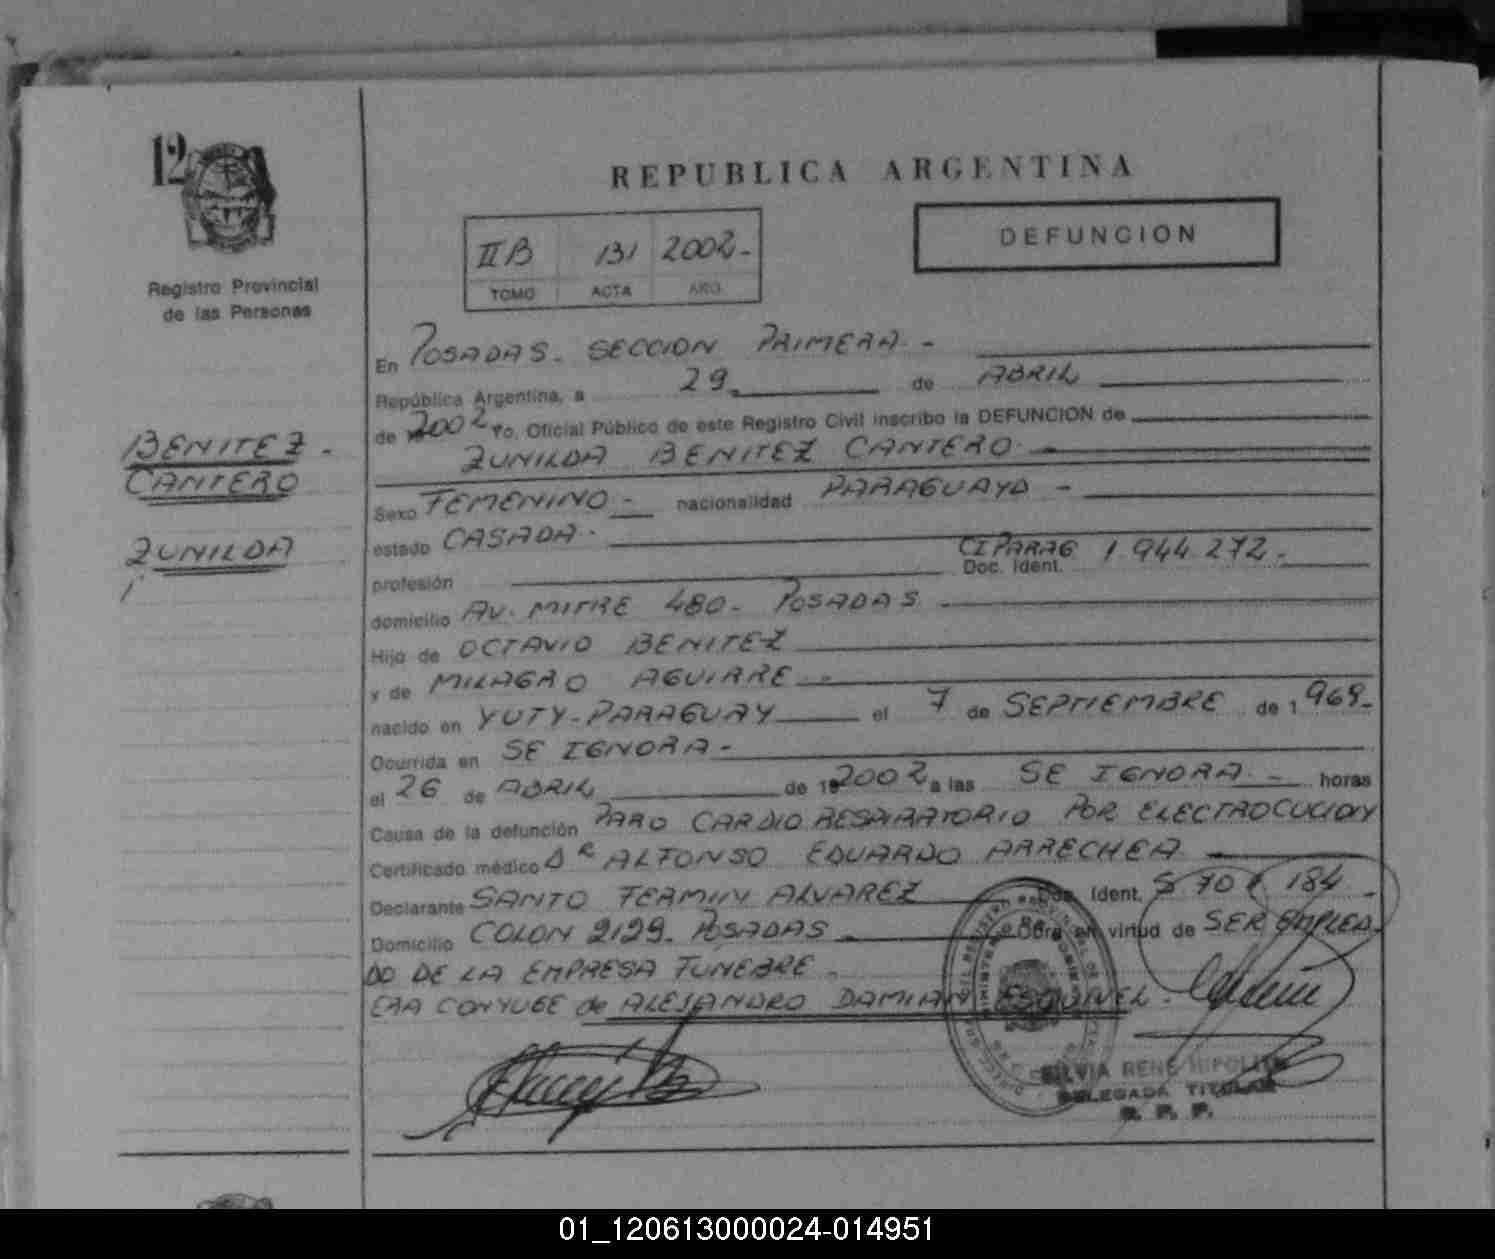 12
Registro Provincial
de las Personas
BENITEZ -
CANTERO
ZUNILDA
REPUBLICA ARGENTINA
IIB 131 2002-
TOMO ACTA AÑO
DEFUNCION
En POSADAS - SECCION PRIMERA -
República Argentina, a 29 de ABRIL
de 2002 Yo, Oficial Público de este Registro Civil inscribo la DEFUNCION de
ZUNILDA BENITEZ CANTERO
Sexo FEMENINO - nacionalidad PARAGUAYA -
estado CASADA -
profesión CI PARAG Doc. Ident. 1.944.272.-
domicilio AV. MITRE 480 - POSADAS
Hijo de OCTAVIO BENITEZ
y de MILAGRO AGUIRRE -
nacido en YUTY - PARAGUAY el 7 de SEPTIEMBRE de 1969-
Ocurrida en SE IGNORA -
el 26 de ABRIL de 2002 a las SE IGNORA - horas
Causa de la defunción PARO CARDIO RESPIRATORIO POR ELECTROCUCION
Certificado médico Dr ALFONSO EDUARDO ARRECHEA
Declarante SANTO FERMIN ALVAREZ Doc. Ident. 184
Domicilio COLON 2129 - POSADAS Obra en virtud de SER EMPLEA-
DO DE LA EMPRESA FUNEBRE -
ERA CONYUGE de ALEJANDRO DAMIAN ESQUIVEL -
SILVIA RENE HIPOLITO
DELEGADA TITULAR
R. P. P.
01_120613000024-014951